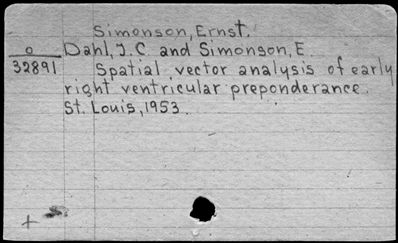 Simonson, Ernst.
O Dahl, J.C. and Simonson, E.
32891 Spatial vector analysis of early
right ventricular preponderance.
St. Louis, 1953.
+